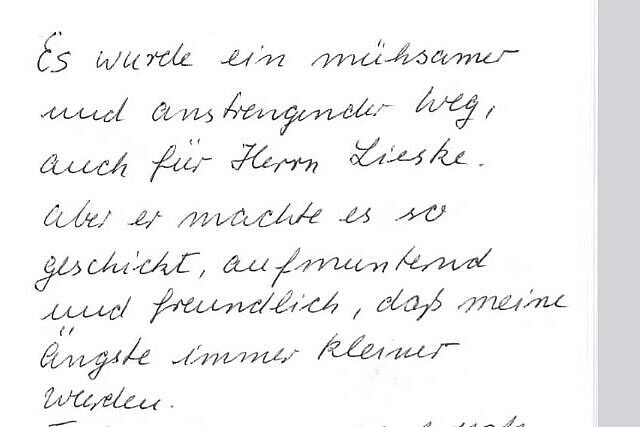 Es wurde ein mühsamer
und anstrengender Weg,
auch für Herrn Lieske.
Aber er machte es so
geschickt, aufmunternd
und freundlich, daß meine
Ängste immer kleiner
wurden.